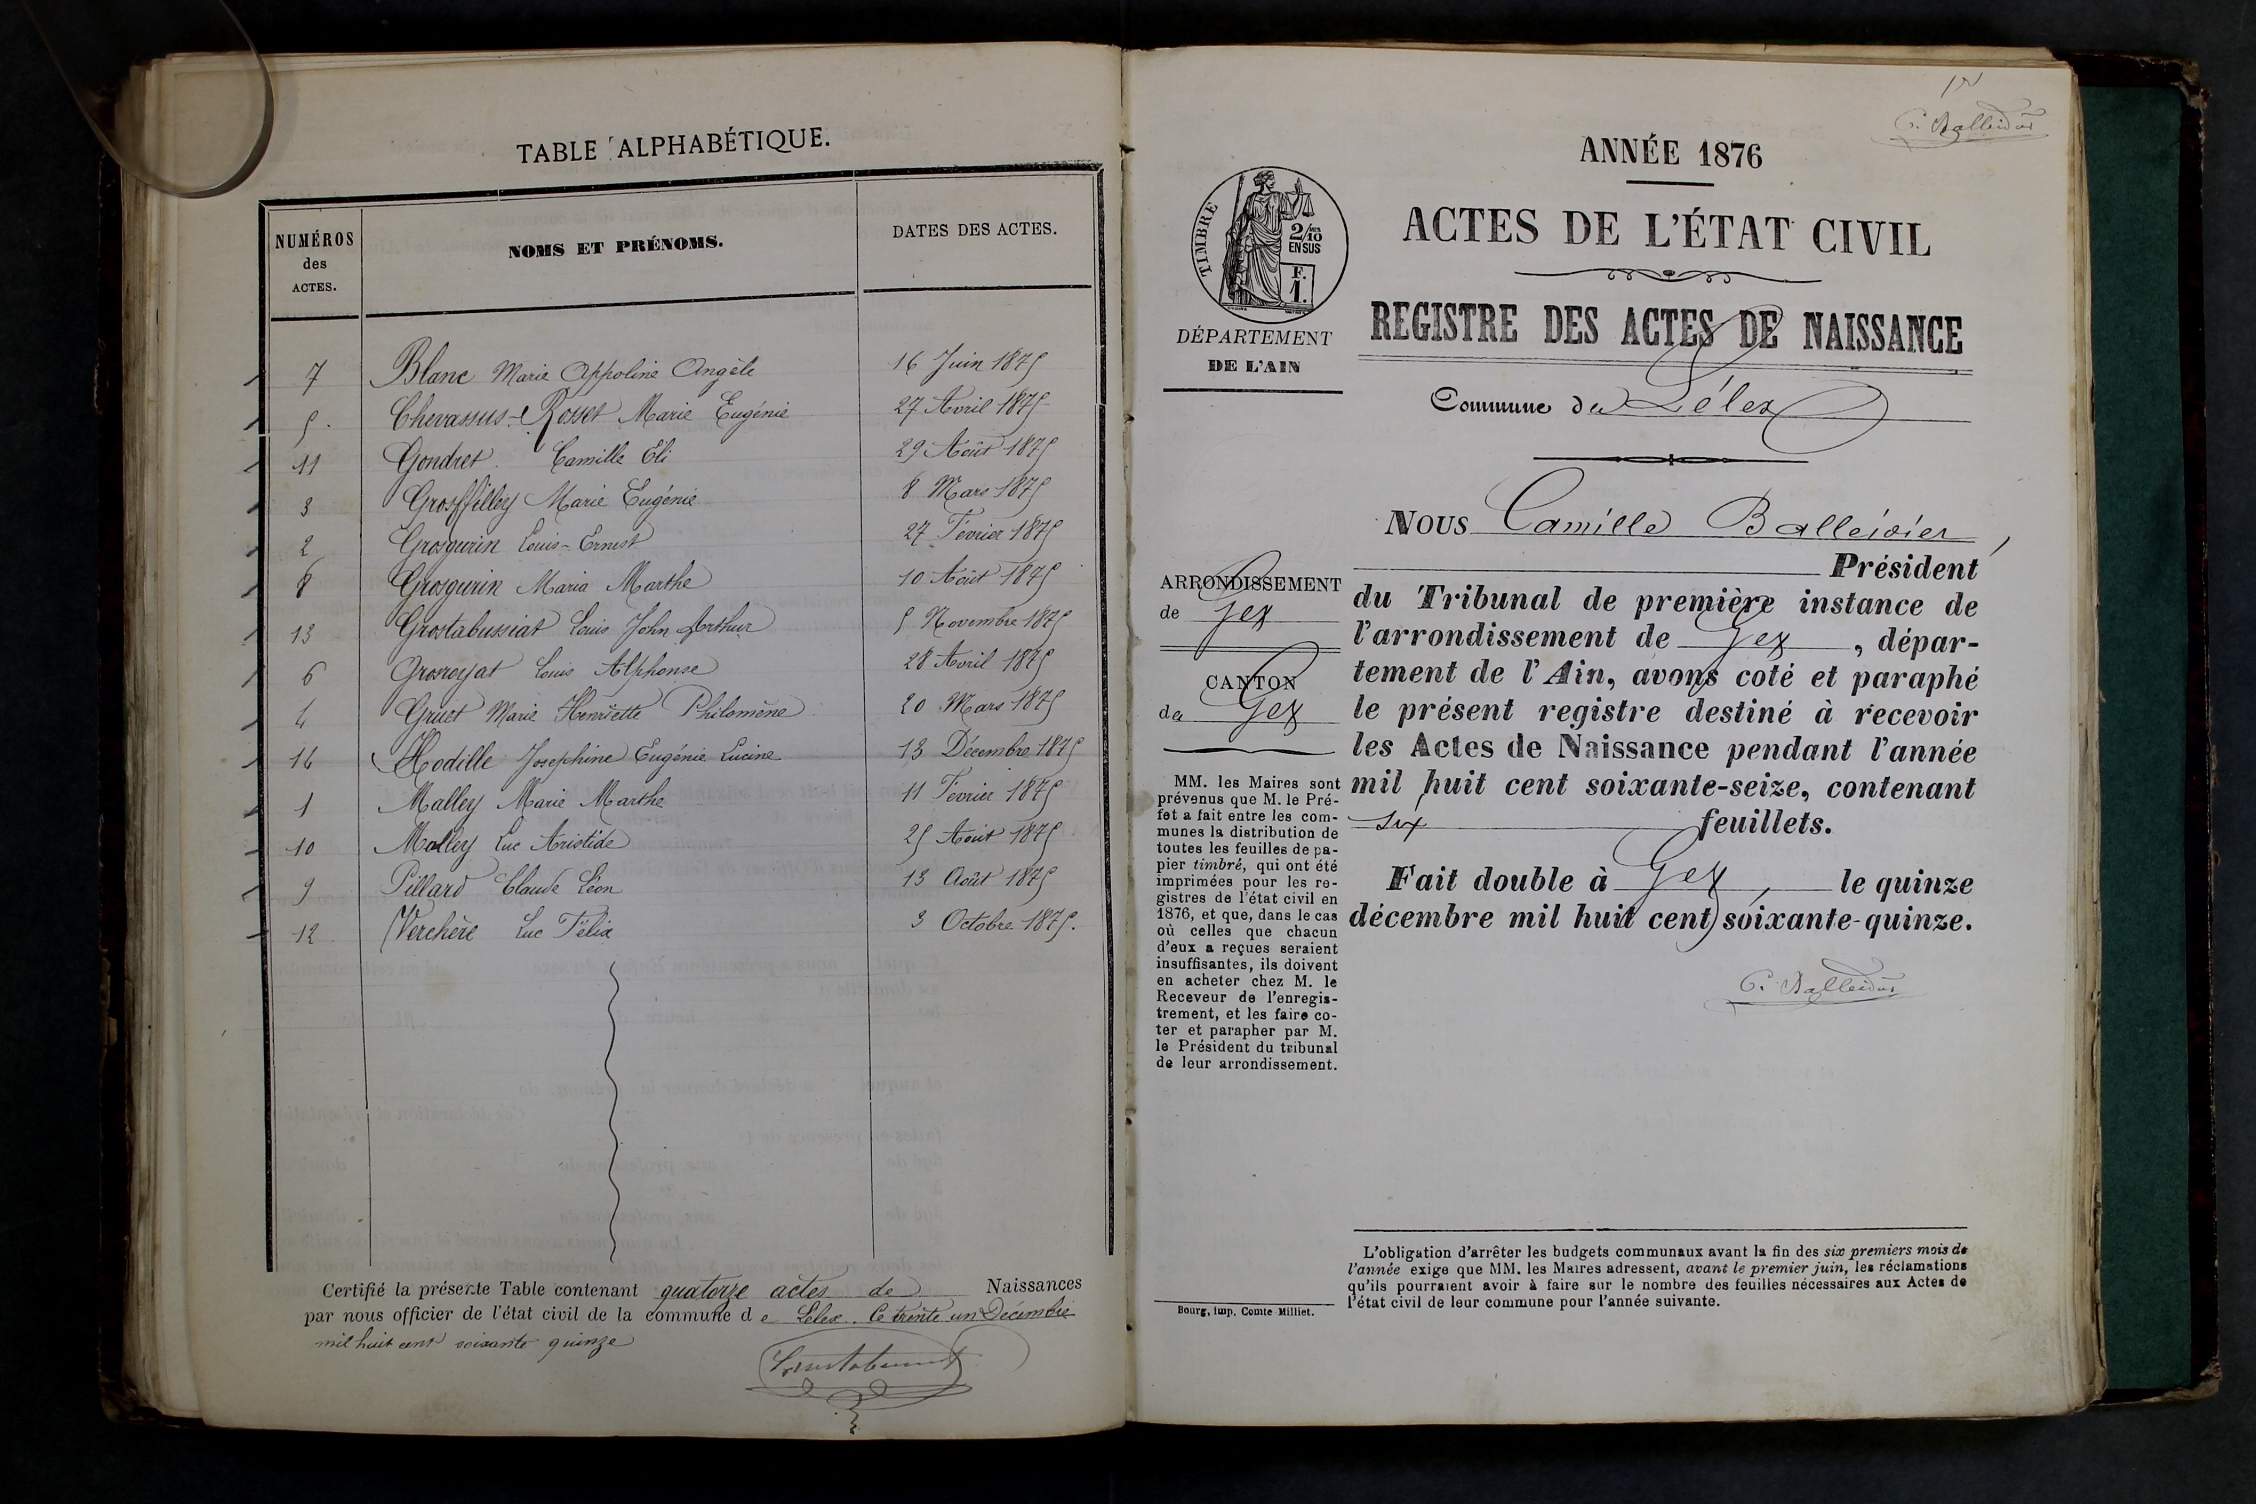 TABLE ALPHABÉTIQUE.
NUMÉROS
des
ACTES.
NOMS ET PRÉNOMS.
DATES DES ACTES.
7 Blanc Marie Appoline Angèle 16 Juin 1875
5. Chevassus-Rosset Marie Eugénie 27 Avril 1875
11 Gondret. Camille Eli 29 Août 1875
3 Grosffilley Marie Eugénie 8 Mars 1875
2 Grosgurin Louis-Ernest 27 Février 1875
8 Grosgurin Maria Marthe 10 Août 1875
13 Grostabussiat Louis John Arthur 5 Novembre 1875
6 Grosroyat Louis Alphonse 28 Avril 1875
4 Gruet Marie Henriette Philomène 20 Mars 1875
14 Hodille Josephine Eugénie Lucine 13 Décembre 1875
1 Malley Marie Marthe 11 Février 1875
10 Malley Luc Aristide 25 Août 1875
9 Pillard Claude Léon 13 Août 1875
12 Verchère Luc Félix 3 Octobre 1875.
Certifié la présente Table contenant quatorze actes de Naissances
par nous officier de l'état civil de la commune de Lelex. le trente un Décembre
mil huit cent soixante quinze
ANNÉE 1876
ACTES DE L'ÉTAT CIVIL
TIMBRE
2/10
EN SUS
F.
1.
DÉPARTEMENT
DE L'AIN
REGISTRE DES ACTES DE NAISSANCE
Commune de Lélex
NOUS Camille Balleidier,
Président
du Tribunal de première instance de
l'arrondissement de Gex, dépar-
tement de l'Ain, avons coté et paraphé
le présent registre destiné à recevoir
les Actes de Naissance pendant l'année
mil huit cent soixante-seize, contenant
six feuillets.
Fait double à Gex, le quinze
décembre mil huit cent soixante-quinze.
C. Balleidier
ARRONDISSEMENT
de Gex
CANTON
de Gex
MM. les Maires sont
prévenus que M. le Pré-
fet a fait entre les com-
munes la distribution de
toutes les feuilles de pa-
pier timbré, qui ont été
imprimées pour les re-
gistres de l'état civil en
1876, et que, dans le cas
où celles que chacun
d'eux a reçues seraient
insuffisantes, ils doivent
en acheter chez M. le
Receveur de l'enregis-
trement, et les faire co-
ter et parapher par M.
le Président du tribunal
de leur arrondissement.
Bourg, imp. Comte-Milliet.
L'obligation d'arrêter les budgets communaux avant la fin des six premiers mois de
l'année exige que MM. les Maires adressent, avant le premier juin, les réclamations
qu'ils pourraient avoir à faire sur le nombre des feuilles nécessaires aux Actes de
l'état civil de leur commune pour l'année suivante.